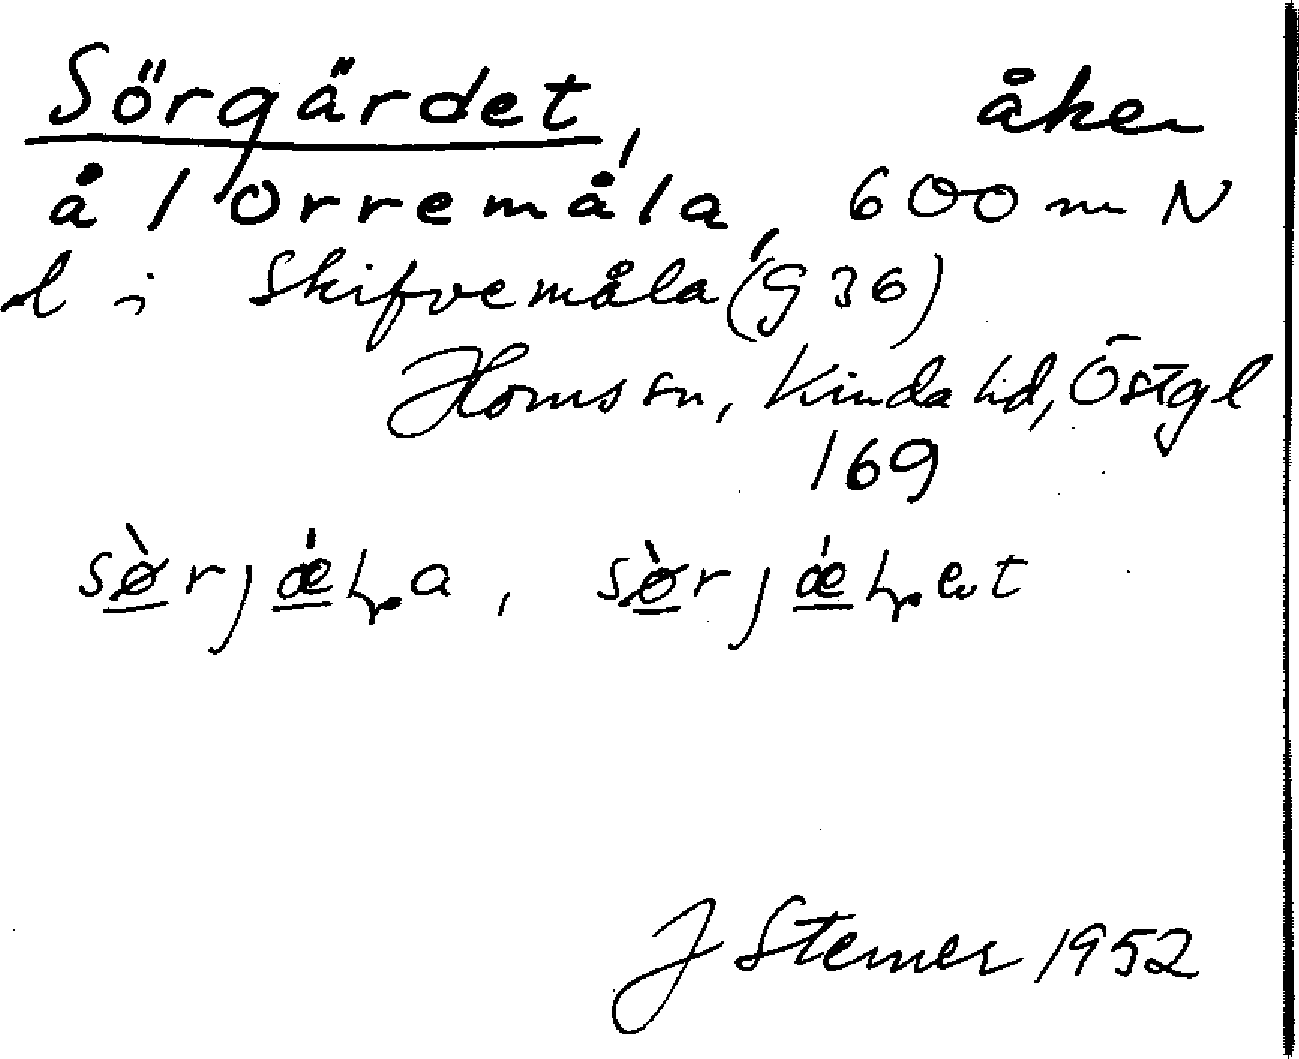 Sörgärdet, åker
å 1 Orremåla, 600 m N
l i Skifvemåla (G 36)
Horns sn, Kinda hd, Östgl
169
J Sterner 1952